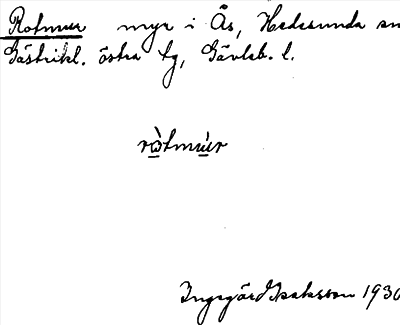 Rotmur myr i Ås, Hedesunda sn
Gästrikl. östra tg, Gävleb. l.
ròtmúr
Ingegärd Isaksson 1930